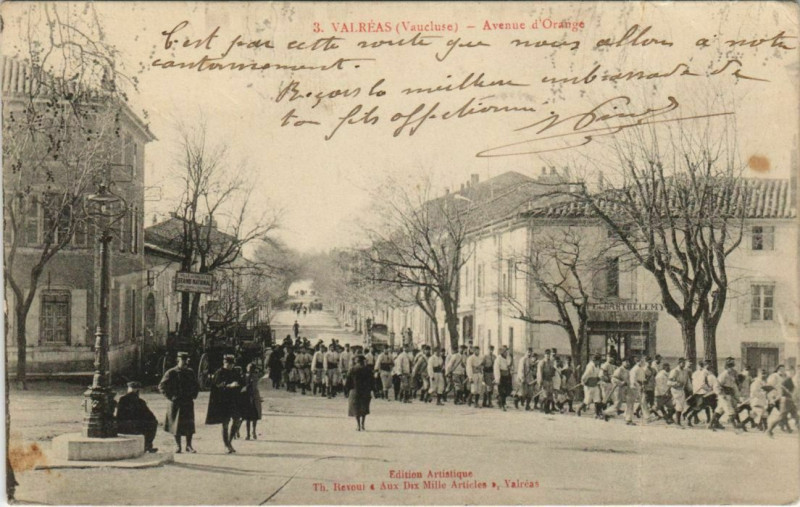 3. VALRÉAS (Vaucluse) – Avenue d'Orange
C'est par cette route que nous allons à notre
cantonnement.
Reçois la meilleure embrassade de
ton fils affectionné
BARTHELEMY
Edition Artistique
Th. Revoul « Aux Dix Mille Articles », Valréas